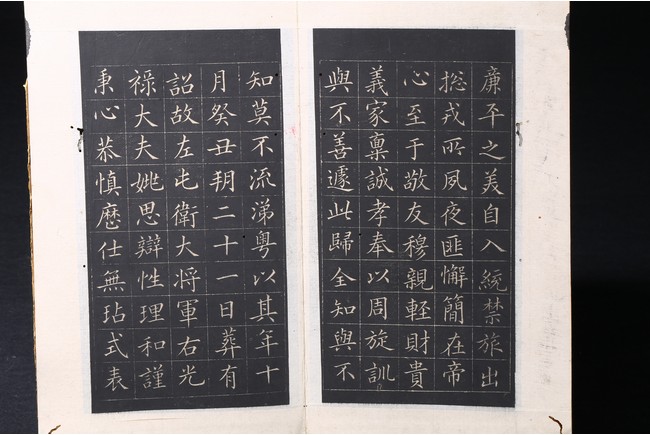 廉平之美自入統禁旅出
捴戎所夙夜匪懈簡在帝
心至于敬友穆親輕財貴
義家稟誠孝奉以周旋訓
與不善遽此歸全知與不
知莫不流涕粵以其年十
月癸丑朔二十一日葬有
詔故左屯衛大將軍右光
祿大夫姚思辯性理和謹
秉心恭慎歷仕無玷式表